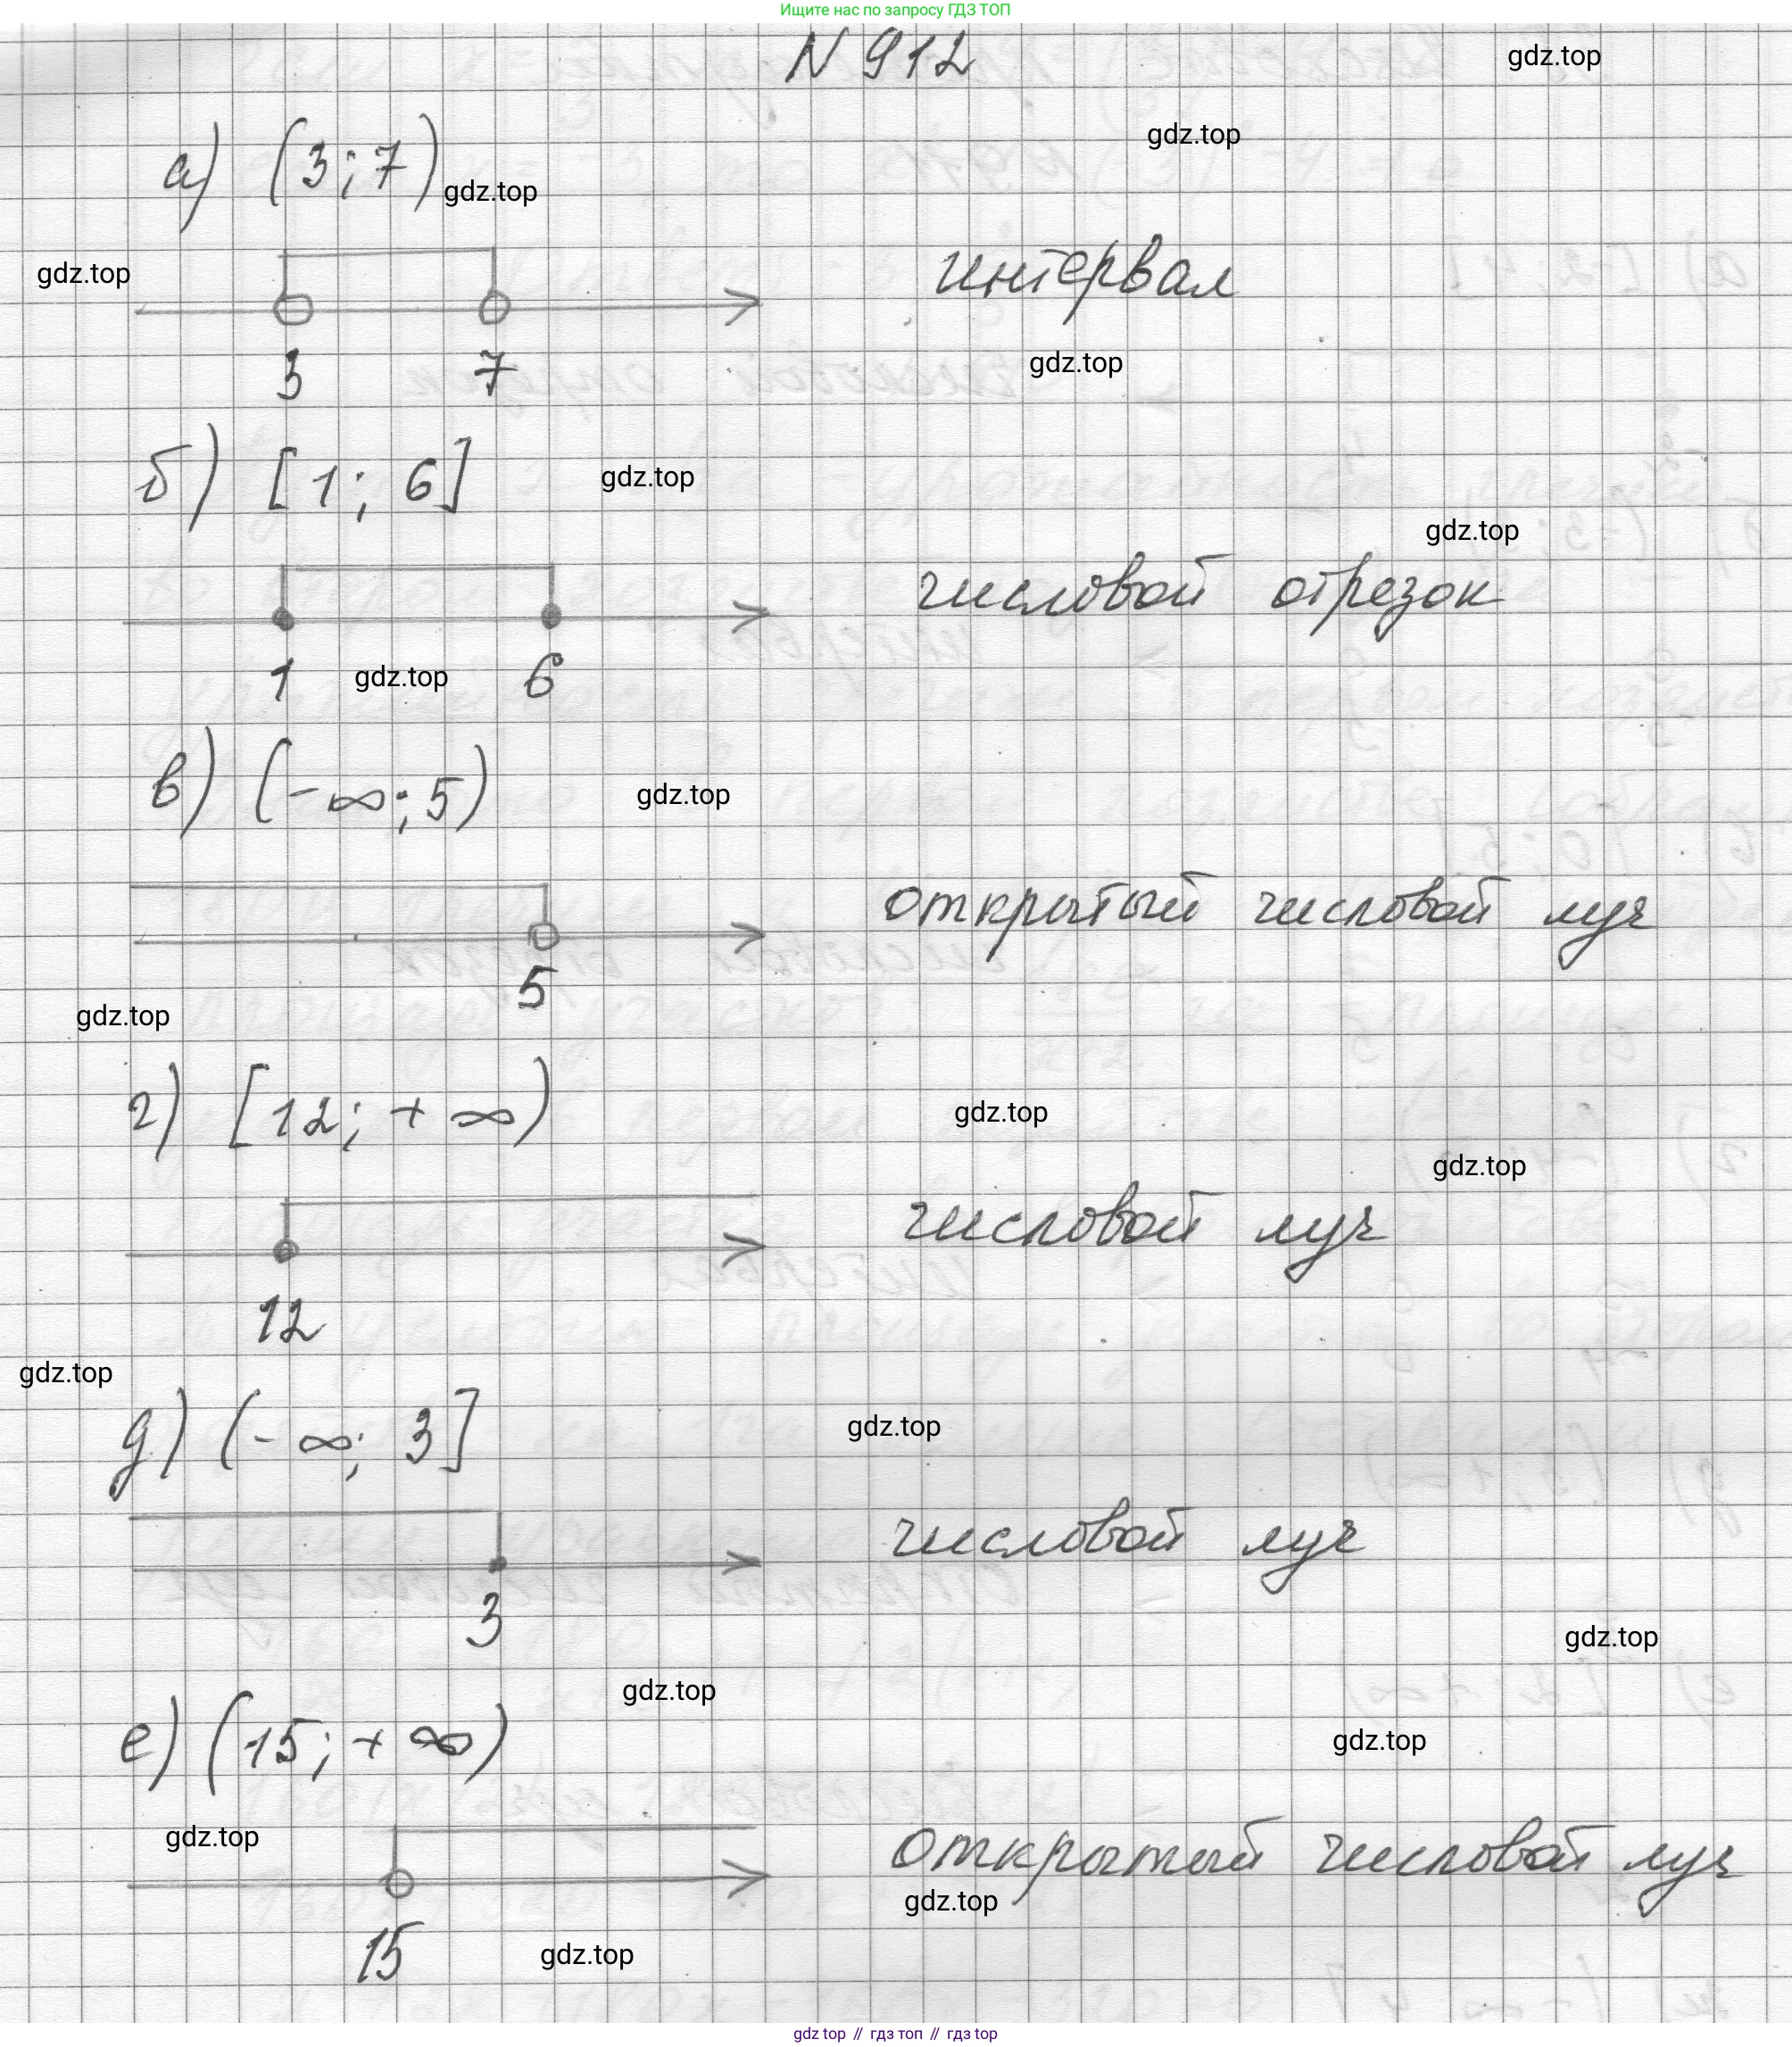 Ищите нас по запросу ГДЗ ТОП
N 912
gdz.top
gdz.top
а) (3;7)
gdz.top
gdz.top
интервал
3 7
gdz.top
б) [1; 6]
gdz.top
gdz.top
числовой отрезок
1 6
gdz.top
в) (-∞;5)
gdz.top
открытый числовой луч
5
gdz.top
г) [12; + ∞)
gdz.top
gdz.top
числовой луч
12
gdz.top
д) (- ∞; 3]
gdz.top
числовой луч
3
gdz.top
gdz.top
е) (15; + ∞)
gdz.top
gdz.top
открытый числовой луч
gdz.top
15
gdz.top
gdz top // гдз топ // gdz top